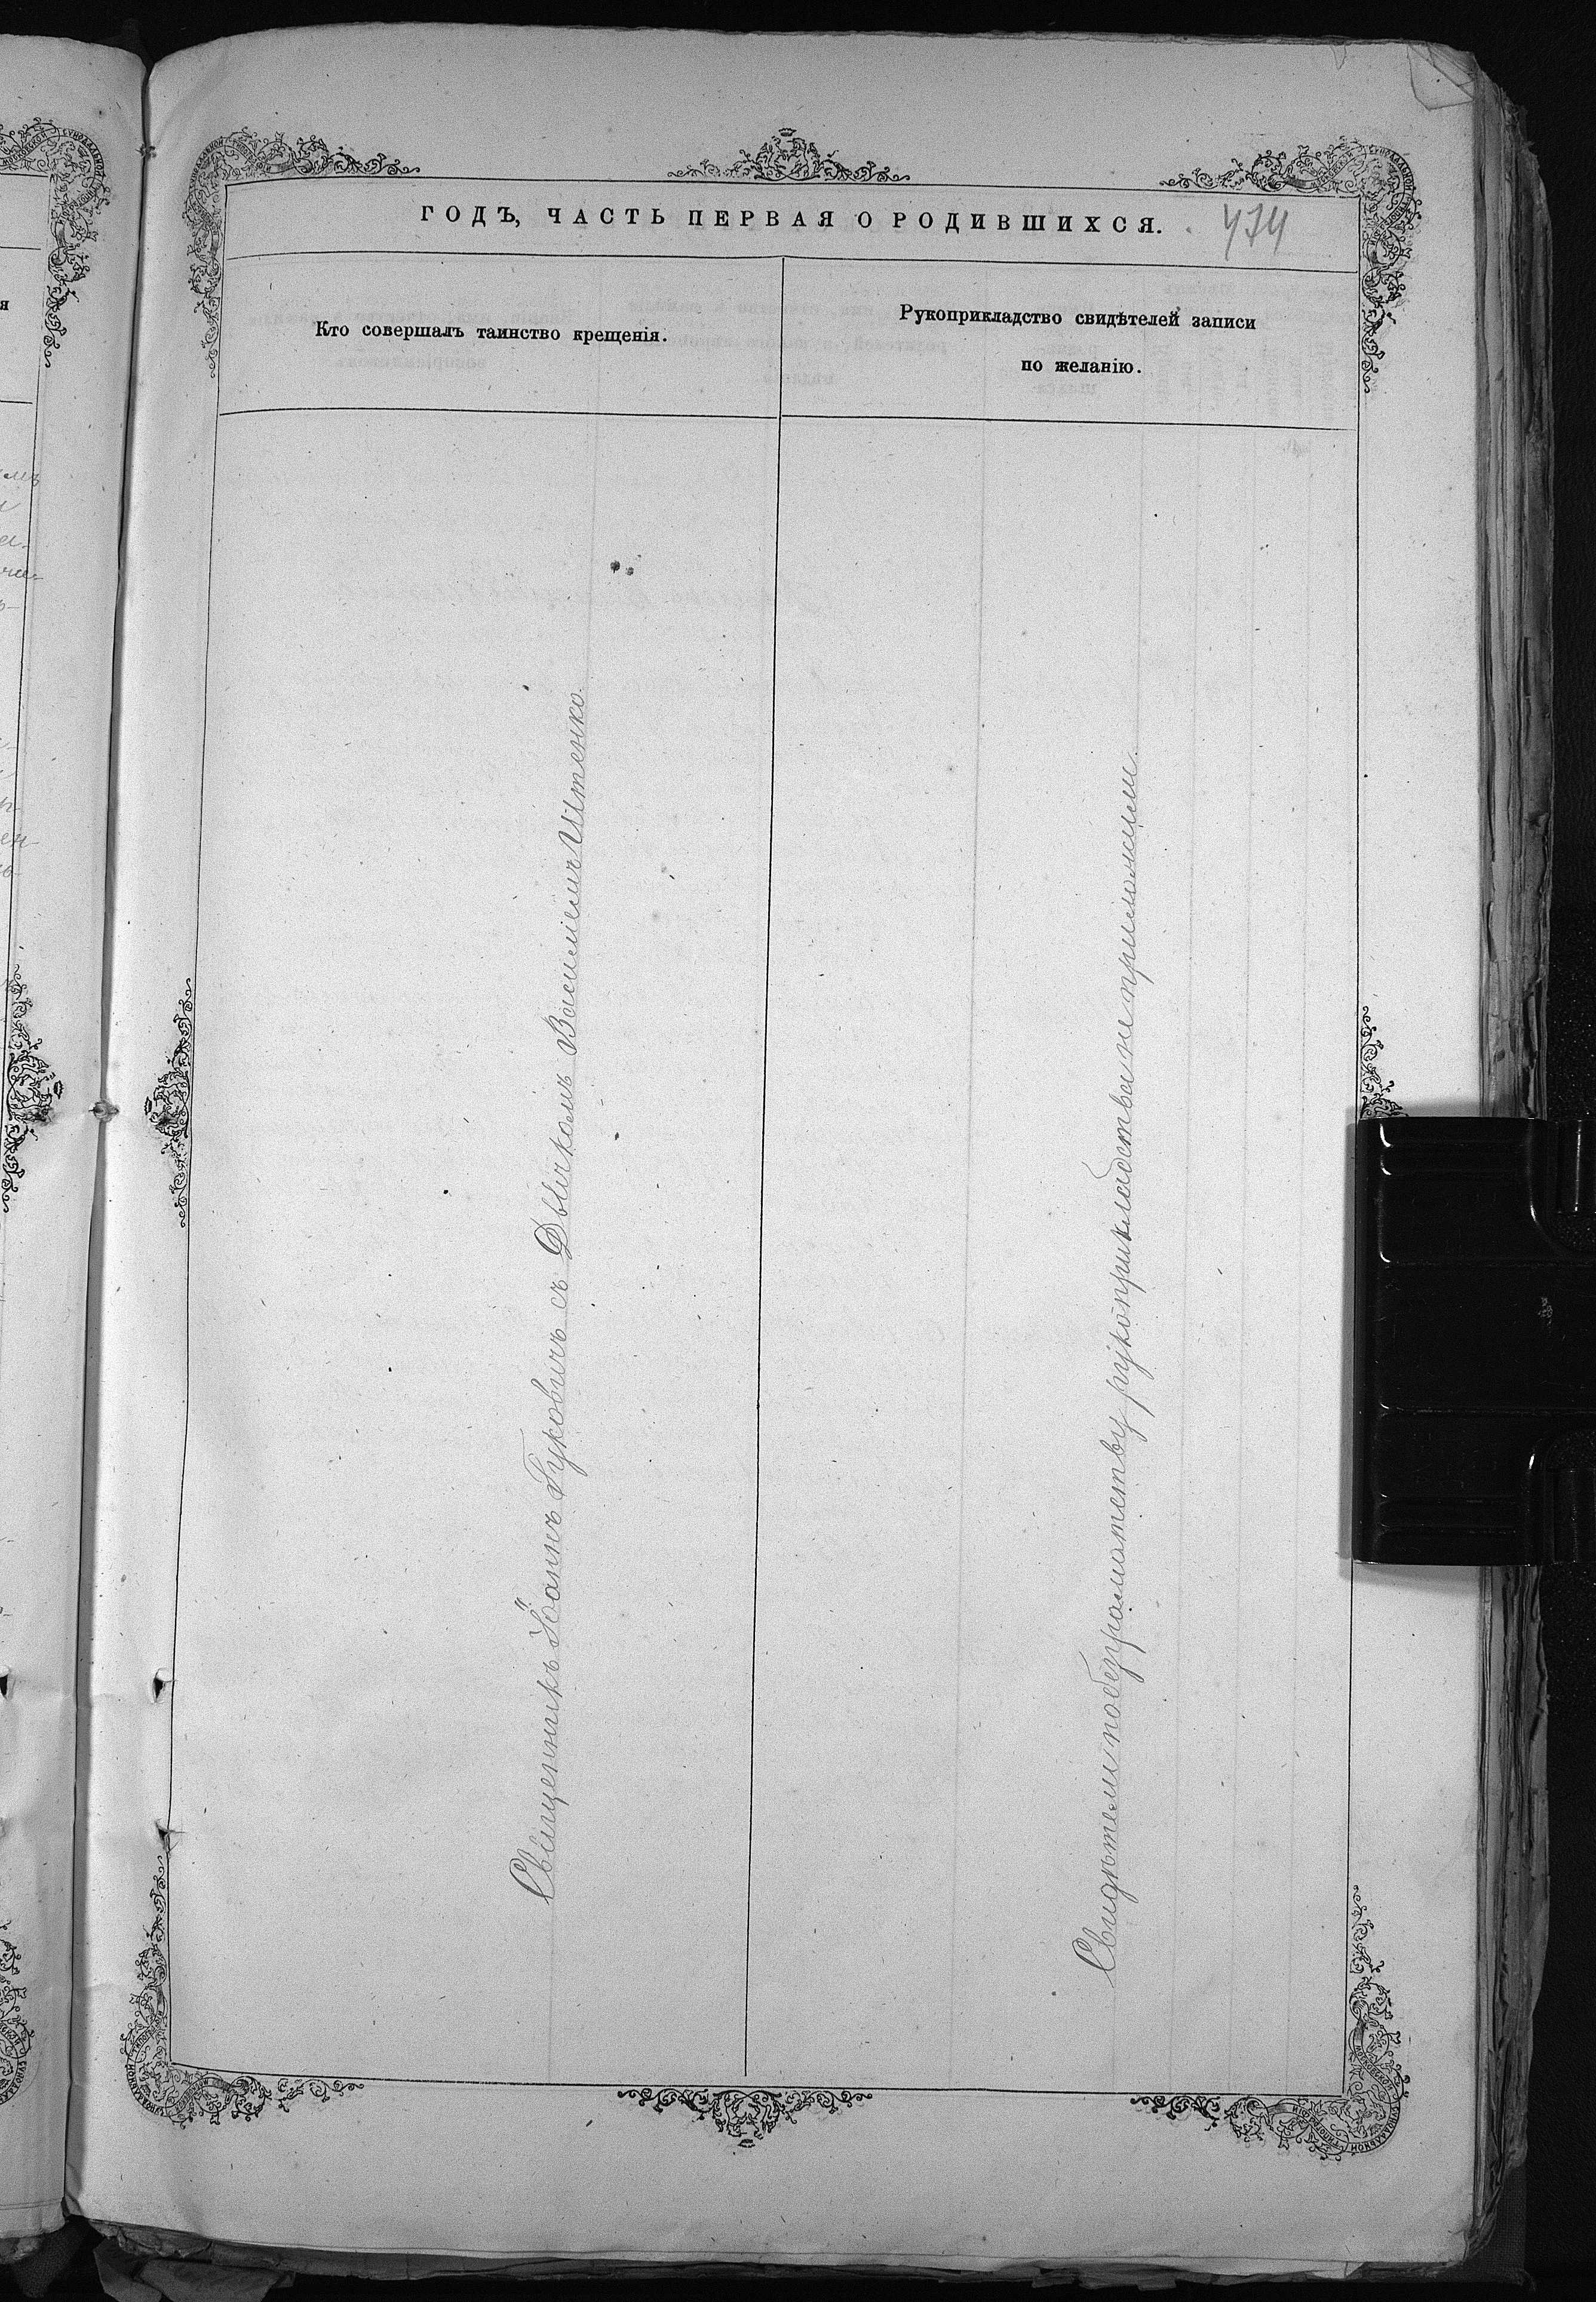 ГОДЪ, ЧАСТЬ ПЕРВАЯ О РОДИВШИХСЯ.
474
Кто совершалъ таинство крещенія.
Рукоприкладство свидѣтелей записи
по желанію.
Священникъ Іоаннъ Гуковичъ съ Дьячкомъ Василіемъ Итенко.
Свидѣтели по безграмотству рукоприкладства не приложили.